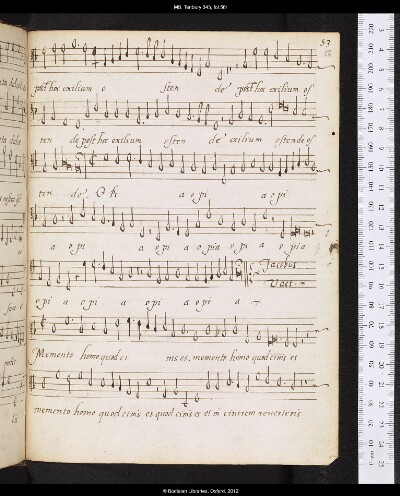 MS. Tenbury 343, fol.56r
57
post hoc exilium o sten de post hoc exilium os
ten de post hoc exilium osten de exilium ostende os
ten de O pi a o pi a o pi
a o pi a o pi a o pia o pi a o pia
o pi a o pi a o pi a o pi a
Jacobus
Vaet
Memento homo quod ci nis es, memento homo quod cinis es
memento homo quod cinis es quod cinis es et in cinerem reuerteris
© Bodleian Libraries, Oxford, 2012